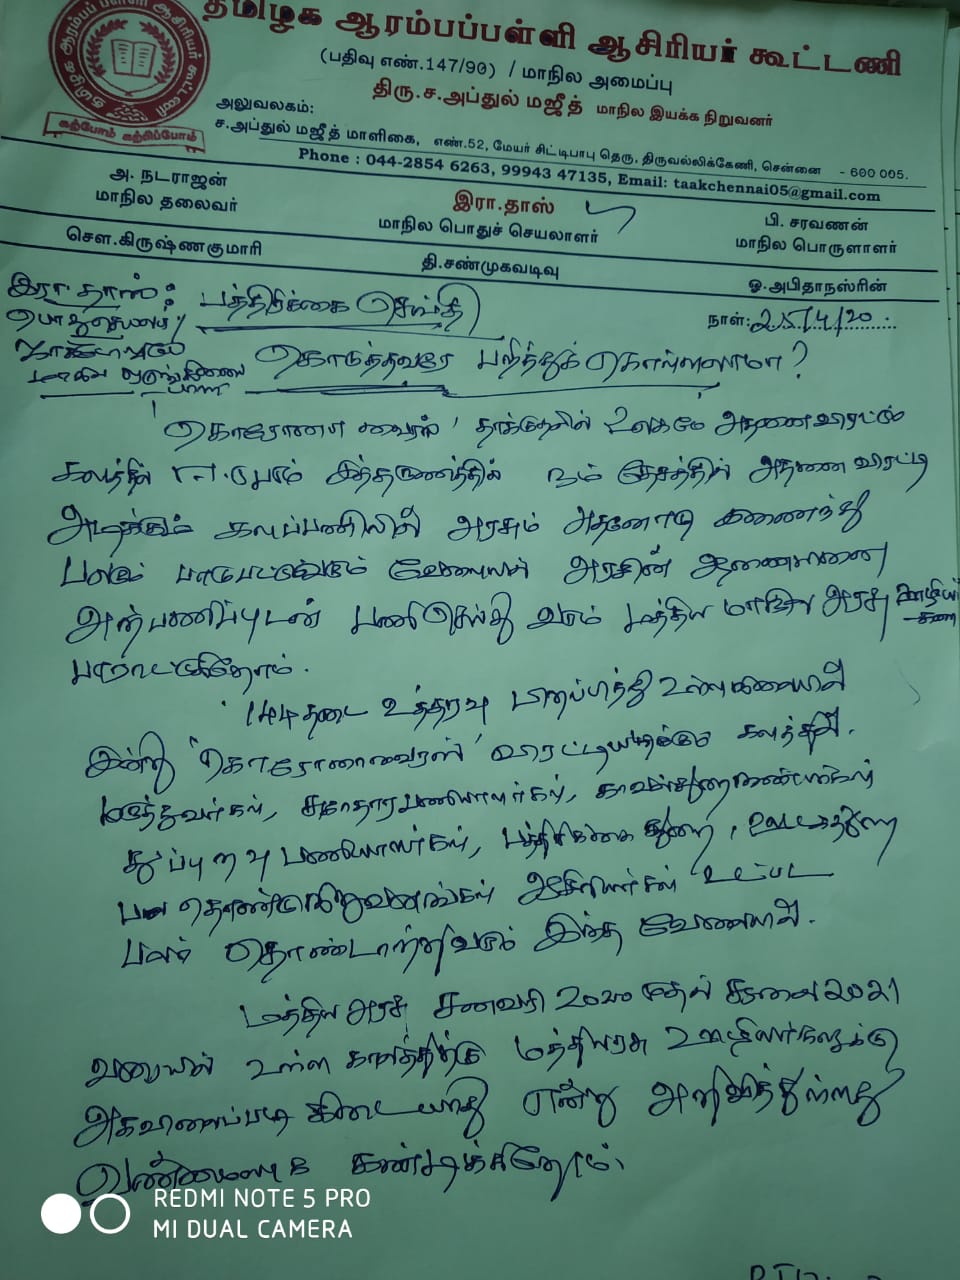 தமிழக ஆரம்பப்பள்ளி ஆசிரியர் கூட்டணி
(பதிவு எண்.147/90) / மாநில அமைப்பு
திரு.ச.அப்துல் மஜீத் மாநில இயக்க நிறுவனர்
அலுவலகம்:
ச.அப்துல் மஜீத் மாளிகை, எண்.52, மேயர் சிட்டிபாபு தெரு, திருவல்லிக்கேணி, சென்னை - 600 005.
Phone : 044-2854 6263, 99943 47135, Email: taakchennai05@gmail.com
கற்போம் கற்பிப்போம்
அ. நடராஜன்
மாநில தலைவர்
இரா.தாஸ்
மாநில பொதுச் செயலாளர்
பி. சரவணன்
மாநில பொருளாளர்
சௌ.கிருஷ்ணகுமாரி
தி.சண்முகவடிவு
ஓ.அபிதாநஸ்ரின்
இரா தாஸ்
பத்திரிக்கை செய்தி
நாள்: 25/4/20
கொடுத்தவரே பறித்துக் கொள்ளலாமா?
'கொரோனா வைரஸ்' தாக்குதலில் உலகமே அதனை விரட்டும்
களத்தில் இத்தருணத்தில் நம் தேசத்தில் அதனை விரட்டி
அடிக்கும் களப்பணியில் அரசும் அதனோடு இணைந்து
பலரும் பாடுபட்டுவரும் வேளையில் அரசின் ஆணைகளை
அர்பணிப்புடன் பணி செய்து வரும் மத்திய மாநில அரசு ஊழியர்
களை
பாராட்டுகிறோம்.
144 தடை உத்தரவு பிறப்பித்து உள்ள நிலையில்
இன்று 'கொரோனாவைரஸ்' விரட்டியடிக்கும் களத்தில்.
மருத்துவர்கள், சுகாதார பணியாளர்கள், காவல்துறை நண்பர்கள்
துப்புறவு பணியாளர்கள், பத்திரிக்கை துறை,
பல தொண்டு நிறுவனங்கள் ஆசிரியர்கள் உட்பட
பலர் தொண்டாற்றிவரும் இந்த வேளையில்.
மத்திய அரசு சனவரி 2020 முதல் சூலை 2021
வரையில் உள்ள காலத்திற்கு மத்தியரசு ஊழியர்களுக்கு
அகவிலைப்படி கிடையாது என்று அறிவித்துள்ளது
வன்மையாக கண்டிக்கிறோம்.
REDMI NOTE 5 PRO
MI DUAL CAMERA